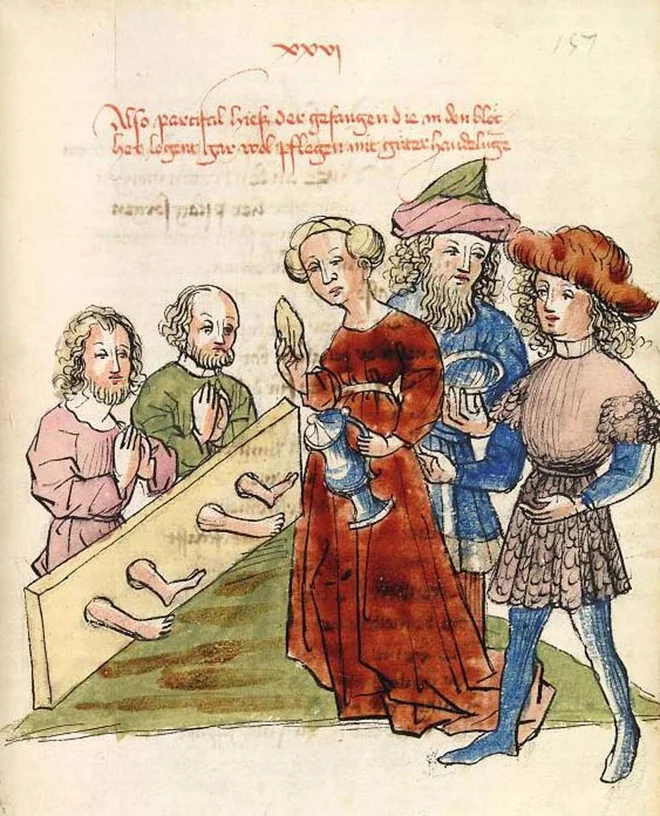 xxvi
157
Also parcifal hies der gefangen die in den bloc
her logent gar wol pflegen mit guter handelunge